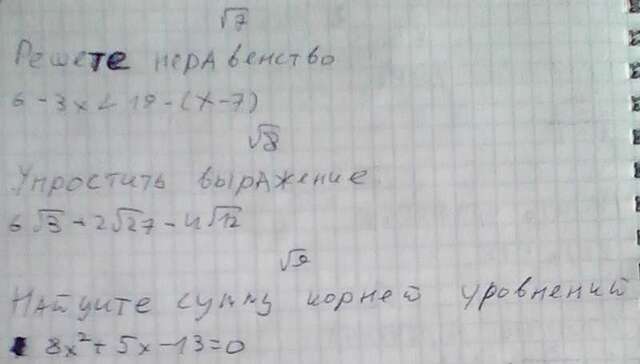 √7
Решете неравенство
6-3x<19-(x-7)
√8
Упростить выражение
6√3-2√27-4√12
√9
Найдите сумму корней уровнений
8x²+5x-13=0